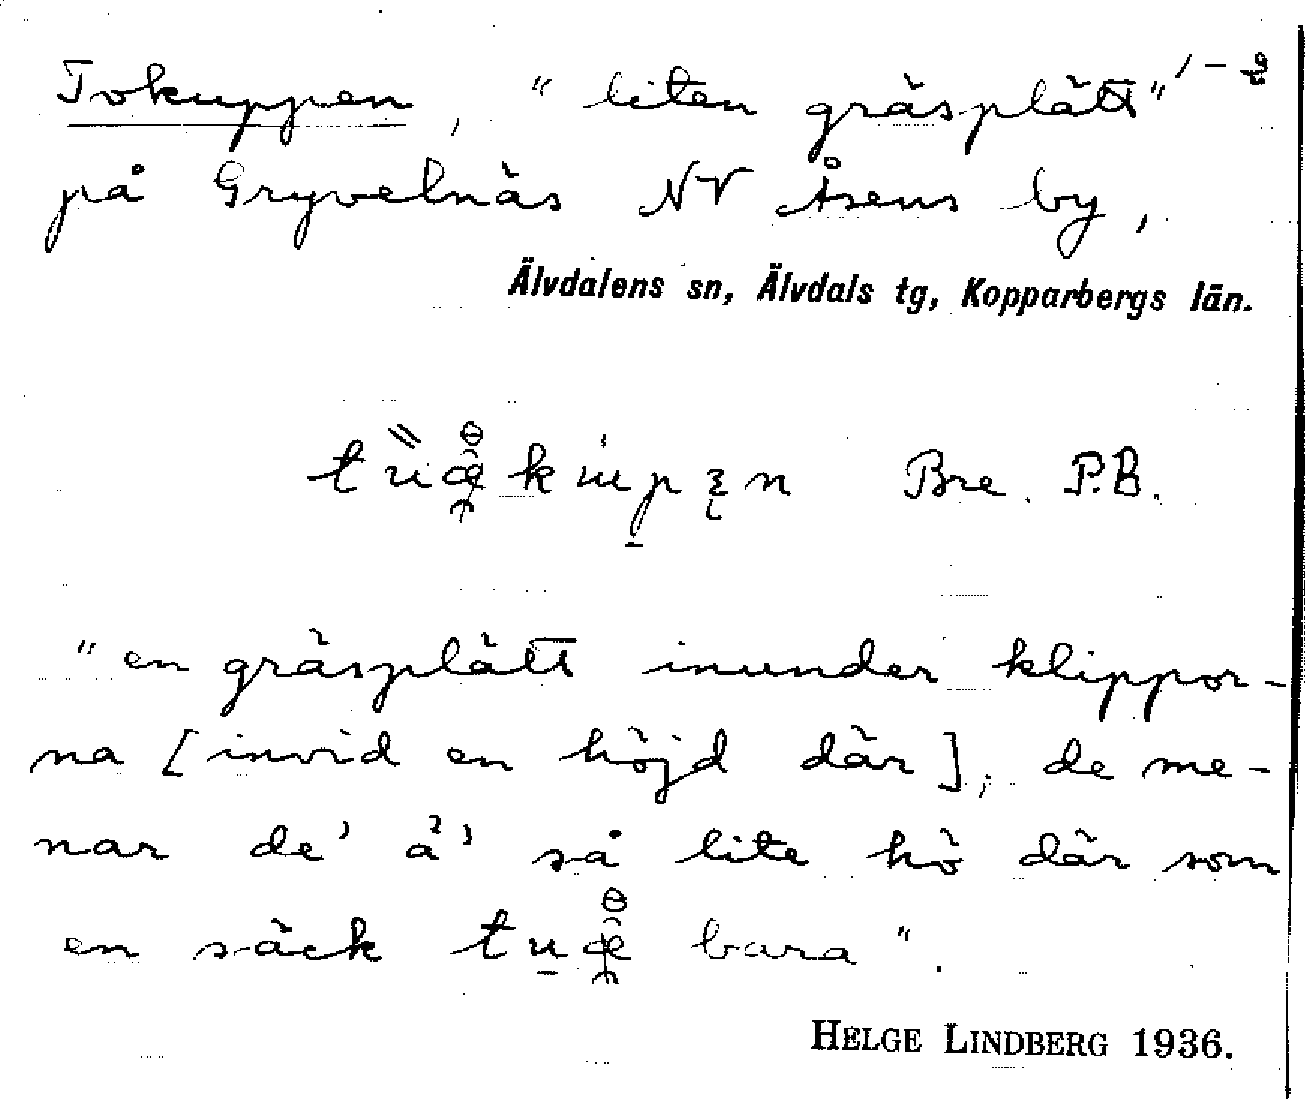 Tokuppen, "liten gräsplätt"
på Gryvelnäs NV Åsens by,
Älvdalens sn, Älvdals tg, Kopparbergs län.
Bre. P.B.
"en gräsplätt inunder klippor-
na [invid en höjd där]; de me-
nar de' ä' så lite hö där som
en säck bara".
HELGE LINDBERG 1936.